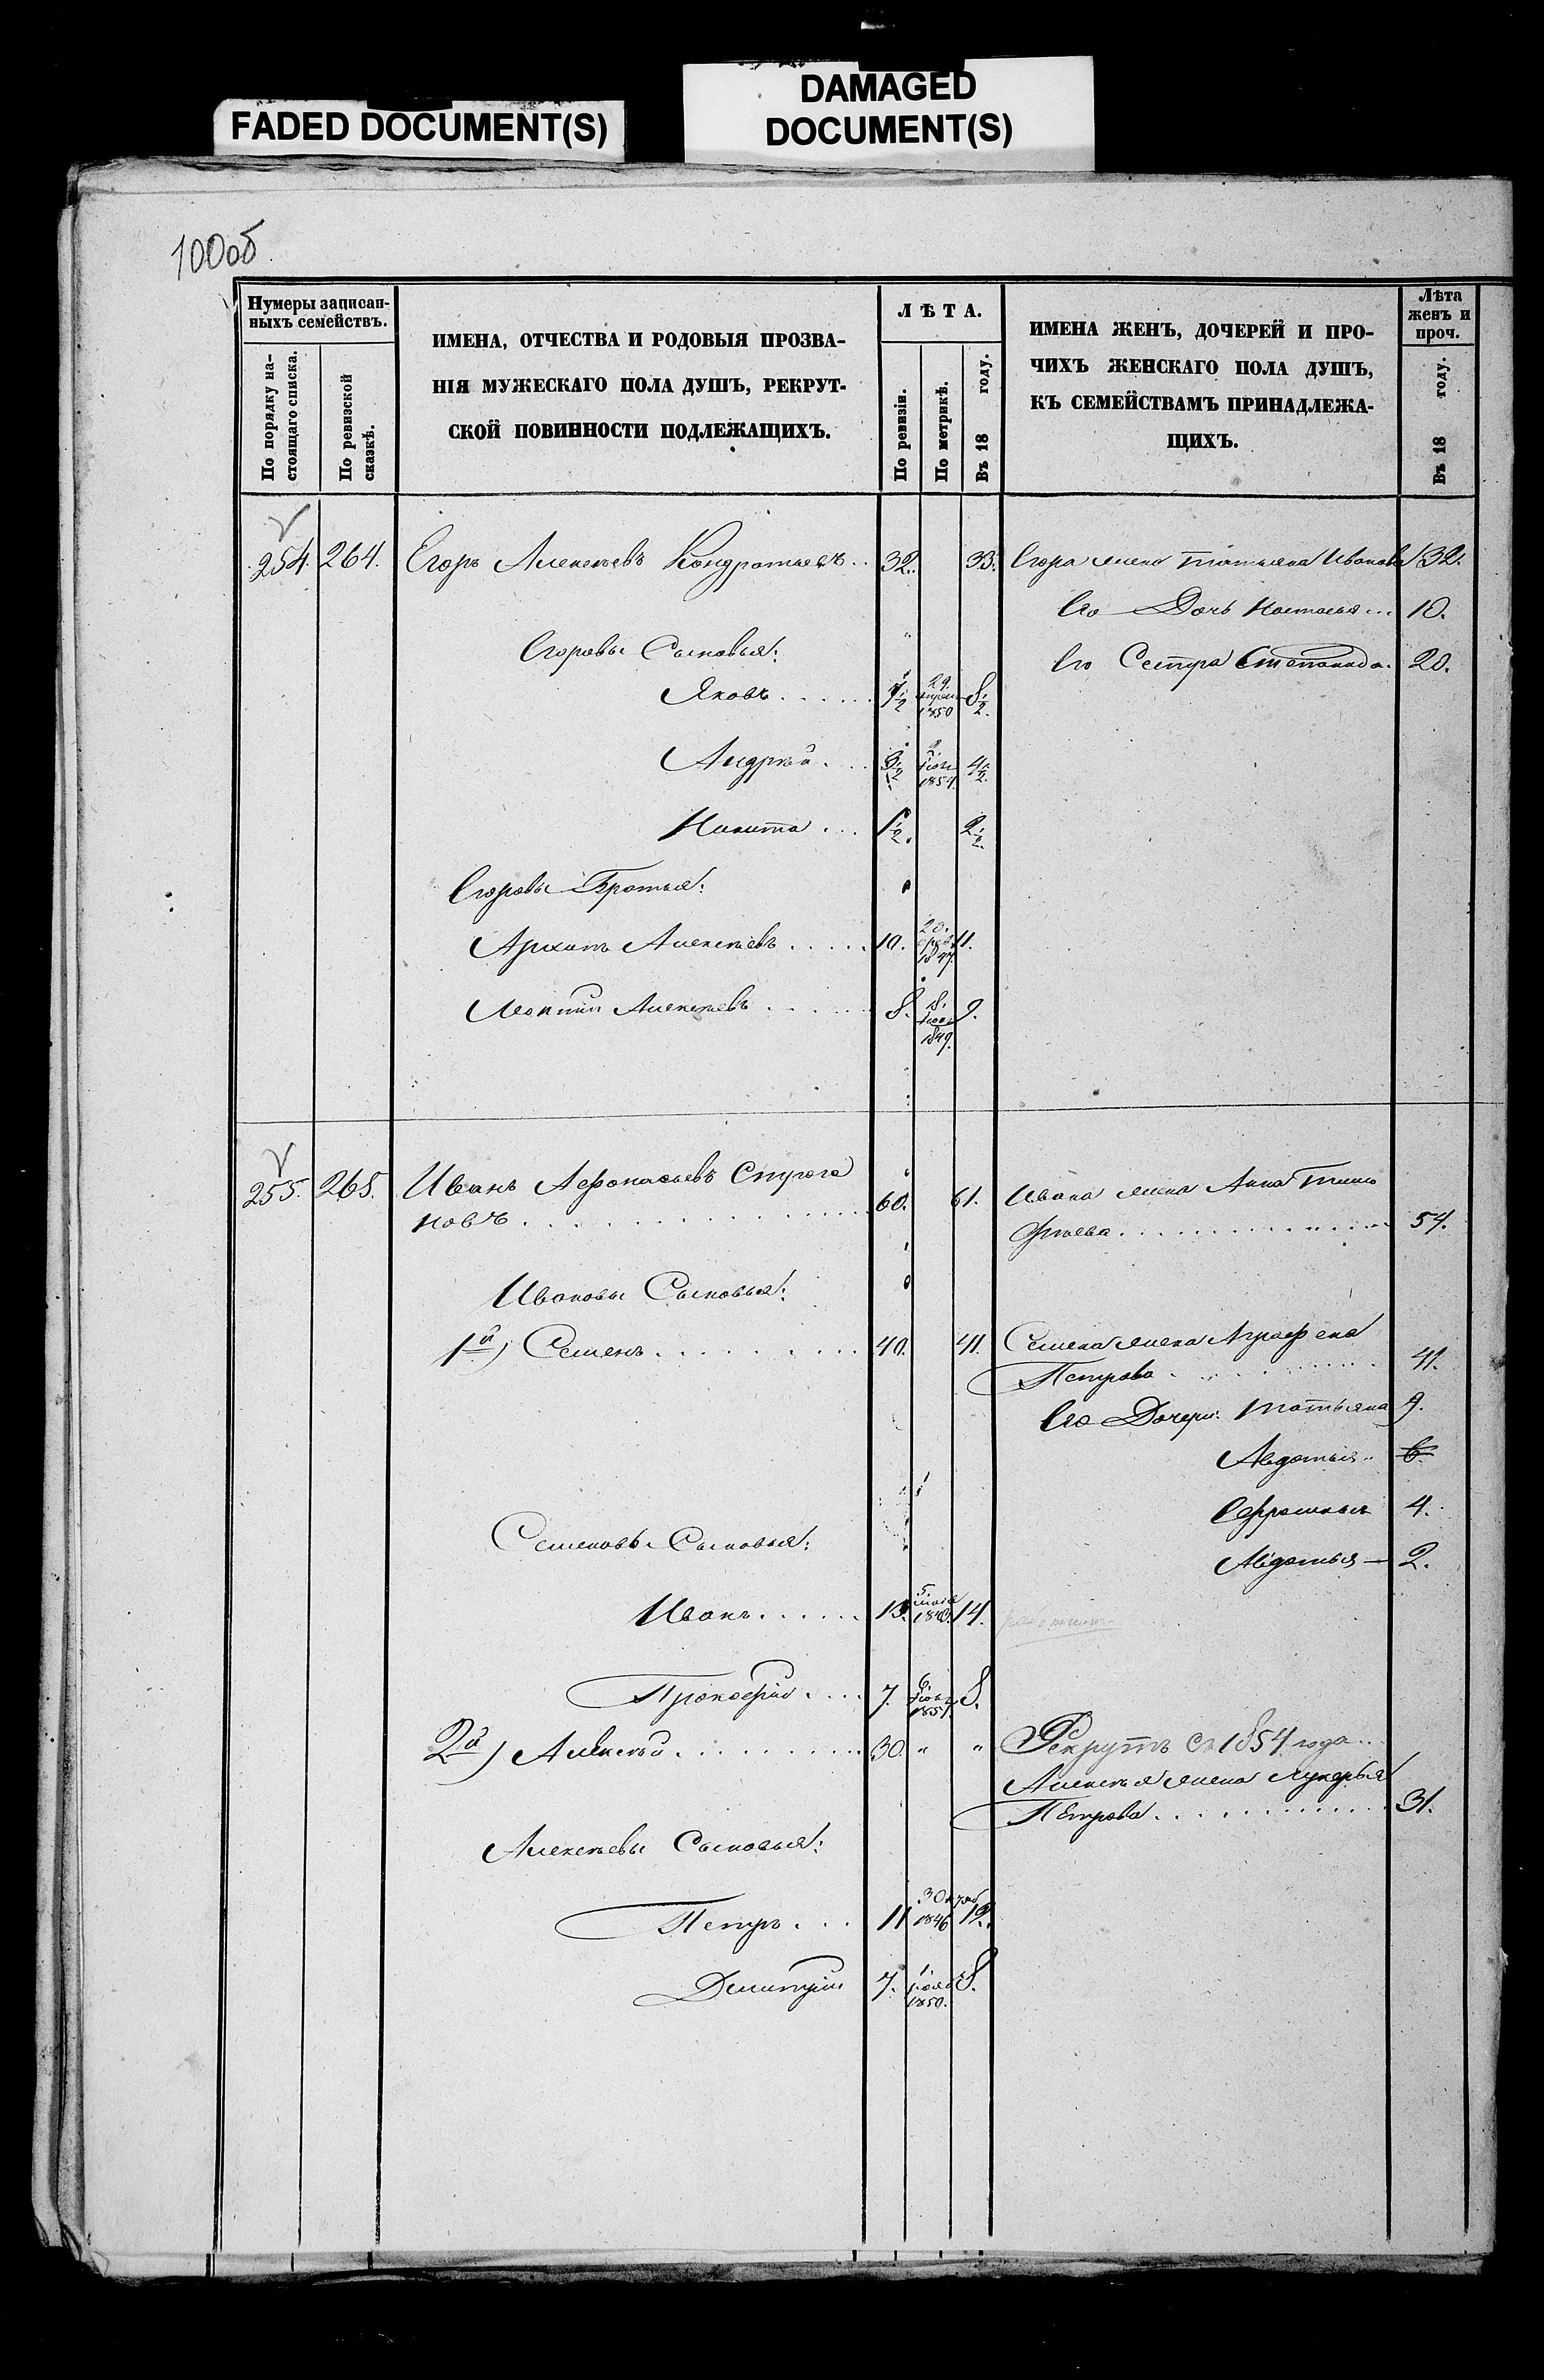 FADED DOCUMENT(S)
DAMAGED
DOCUMENT(S)
100об.
Нумеры записан-
ныхъ семействъ.
По порядку на-
стоящаго списка.
По ревизской
сказкѣ.
ИМЕНА, ОТЧЕСТВА И РОДОВЫЯ ПРОЗВА-
НІЯ МУЖЕСКАГО ПОЛА ДУШЪ, РЕКРУТ-
СКОЙ ПОВИННОСТИ ПОДЛЕЖАЩИХЪ.
ЛѢТА.
По ревизіи.
По метрикѣ.
Въ 18 году.
ИМЕНА ЖЕНЪ, ДОЧЕРЕЙ И ПРО-
ЧИХЪ ЖЕНСКАГО ПОЛА ДУШЪ,
КЪ СЕМЕЙСТВАМЪ ПРИНАДЛЕЖА-
ЩИХЪ.
Лѣта
женъ и
проч.
Въ 18 году.
254. 264. Егоръ Алексѣевъ Кондратьевъ.. 32. 33. Егора жена Татьяна Иванова 32.
Его Дочь Настасья... 10.
Егоровы Сыновья: Его Сестра Степанида. 20.
Яковъ...... 7½ 29. апрѣл 1850 8½.
Андрѣй.... 3½ 2. 1854. 4½.
Никита.... 1½. 2½.
Егоровы Братья:
Архипъ Алексѣевъ..... 10. 20. фев. 1847. 11.
Леонтій Алексѣевъ...... 8. 18. 1849. 9.
255. 265. Ивань Афонасьевъ Строга
новъ................ 60. 61. Ивана жена Анна Тимо
фѣева............... 54.
Ивановы Сыновья:
1й) Семенъ......... 40. 41. Семена жена Аграфена
Петрова........... 41.
Его Дочери: Татьяна 9.
Авдотья.. 6.
Ефросинья 4.
Семеновы Сыновья:
Авдотья — 2.
Иванъ...... 13. 5. 1843. 14.
Прокофій.... 7. 6. 1851. 8.
2й) Алексѣй......... 30. " " Рекрутъ съ 1854 года..
Алексѣя жена Лукерья
Петрова............ 31.
Алексѣевы Сыновья:
Петръ.... 11 30 1846 12..
Дмитрій 7. 1. нояб 1850. 8.